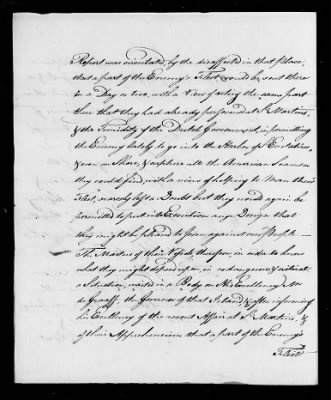 Report was orientated, by the disaffected in that Place,
that a part of the Enemy's Fleet would be sent there
in a Day or two, with a View of acting the same part
there that they had already performed at St Martins,
& the Timidity of the Dutch Government in permitting
the Enemy lately to go into the Harbor of St Eustatius,
& even on Shore, & capture all the American Seamen
they could find, with a view of helping to Man their
Fleet, scarcely left a Doubt but they would again be
permitted to put into Execution any Design that
they might be pleased to form against our People —
The Masters of their Vessels, therefore, in order to know
what they might depend on, in so dangerous & critical
a Situation, waited in a Body on His Excellency Mr
de Graaff, the Governor of that Island, & after informing
his Excellency of the recent Affair at St Martins, &
of their Apprehensions that a part of the Enemy's
Fleet